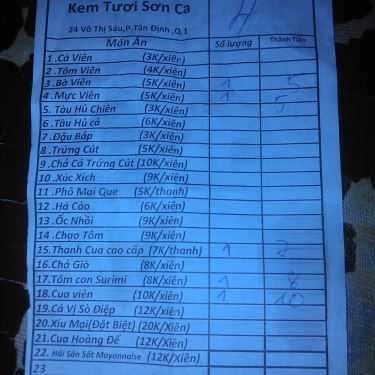 Kem Tươi Sơn Ca
24 Võ Thị Sáu,P.Tân Định ,Q.1
Món Ăn Số lượng Thành Tiền
1 .Cá Viên (3K/xiên)
2 .Tôm Viên (4K/xiên)
3 .Bò Viên (5K/xiên) 1 5
4 .Mực Viên (5K/xiên) 1 5
5. Tàu Hủ Chiên (3K/xiên)
6 .Tàu Hủ cá (6K/xiên)
7 .Đậu Bắp (3K/xiên)
8 .Trứng Cút (5K/xiên)
9 .Chả Cá Trứng Cút (10K/xiên)
10 .Xúc Xích (9K/xiên)
11 .Phô Mai Que (5K/thanh)
12 .Há Cảo (6K/xiên)
13 .Ốc Nhồi (9K/xiên)
14 .Chạo Tôm (9K/xiên)
15.Thanh Cua cao cấp (7K/thanh) 1 7
16.Chả Giò (8K/xiên)
17.Tôm con Surimi (8K/xiên) 1 8
18.Cua viên (10K/xiên) 1 10
19.Cá Vị Sò Điệp (12K/xiên)
20.Xíu Mại(Đặt Biệt) (20K/Xiên)
21.Cua Hoàng Đế (12K/Xiên)
22. Hải Sản Sốt Mayonnaise (12K/Xiên)
23